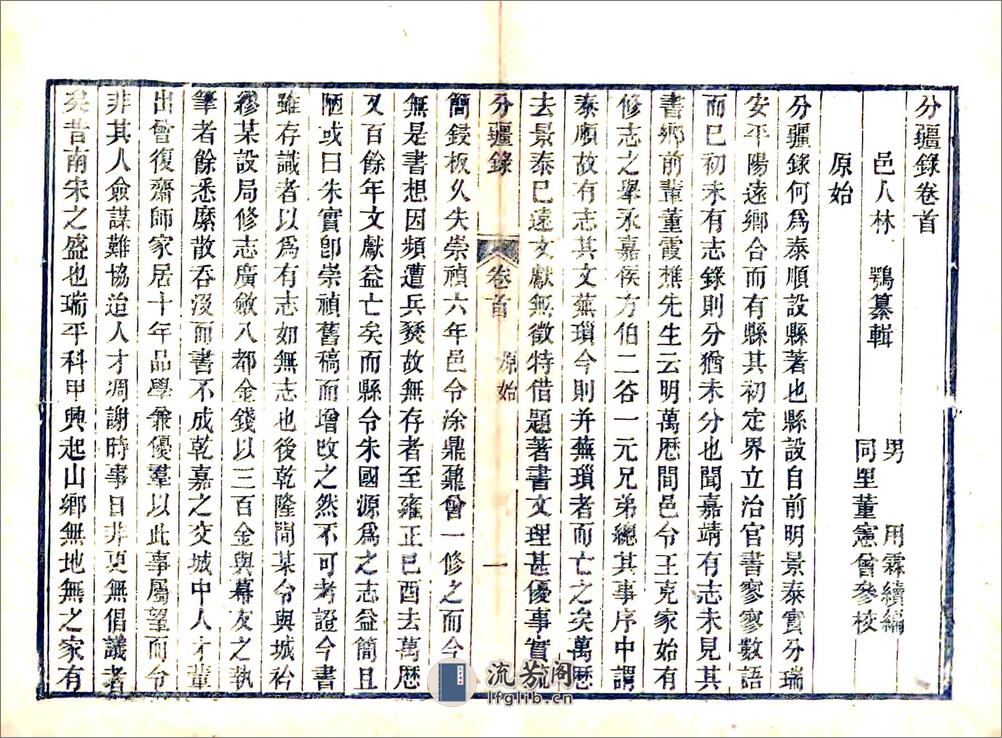 分疆錄卷首
邑人林 鶚纂輯 男 用霖續編
同里董憲曾參校
原始
分疆錄何爲泰順設縣著也縣設自前明景泰實分瑞
安平陽遠鄉合而有縣其初定界立治官書寥寥數語
而已初未有志錄則分猶未分也聞嘉靖有志未見其
書鄉前輩董霞樵先生云明萬歷間邑令王克家始有
修志之舉永嘉侯方伯二谷一元兄弟總其事序中謂
泰順故有志其文蕪瑣今則并蕪瑣者而亡之矣萬歷
去景泰已遠文獻無徵特借題著書文理甚優事實
分疆錄 卷首 原始 一
簡錽板久失崇禎六年邑令涂鼎鼐曾一修之而今
無是書想因頻遭兵燹故無存者至雍正已酉去萬歷
又百餘年文獻益亡矣而縣令朱國源爲之志益簡且
陋或曰朱實卽崇禎舊稿而增改之然不可考證今書
雖存識者以爲有志如無志也後乾隆間某令與城衿
繆某設局修志廣斂八都金錢以三百金與幕友之執
筆者餘悉縻散吞沒而書不成乾嘉之交城中人才輩
出曾復齋師家居十年品學兼優羣以此事屬望而令
非其人僉謀難協迨人才凋謝時事日非更無倡議者
矣昔南宋之盛也瑞平科甲興起山鄉無地無之家有
流芳阁
lfglib.cn